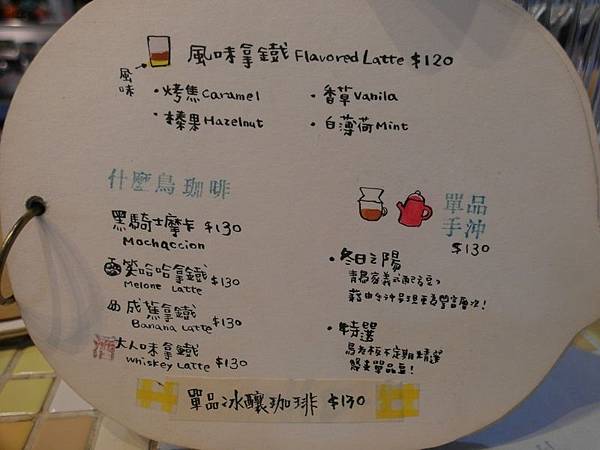 風味拿鐵 Flavored Latte $120
風味
·烤焦 Caramel
·香草 Vanila
·榛果 Hazelnut
·白薄荷 Mint
什麼鳥珈啡
黑騎士摩卡 $130
Mochaccion
笑哈哈拿鐵 $130
Melone Latte
成蕉拿鐵 $130
Banana Latte
酒 大人味拿鐵 $130
Whiskey Latte
單品
手沖
$130
·冬日之陽
·特選
不定期精選
單品豆!
單品冰釀珈琲 $130